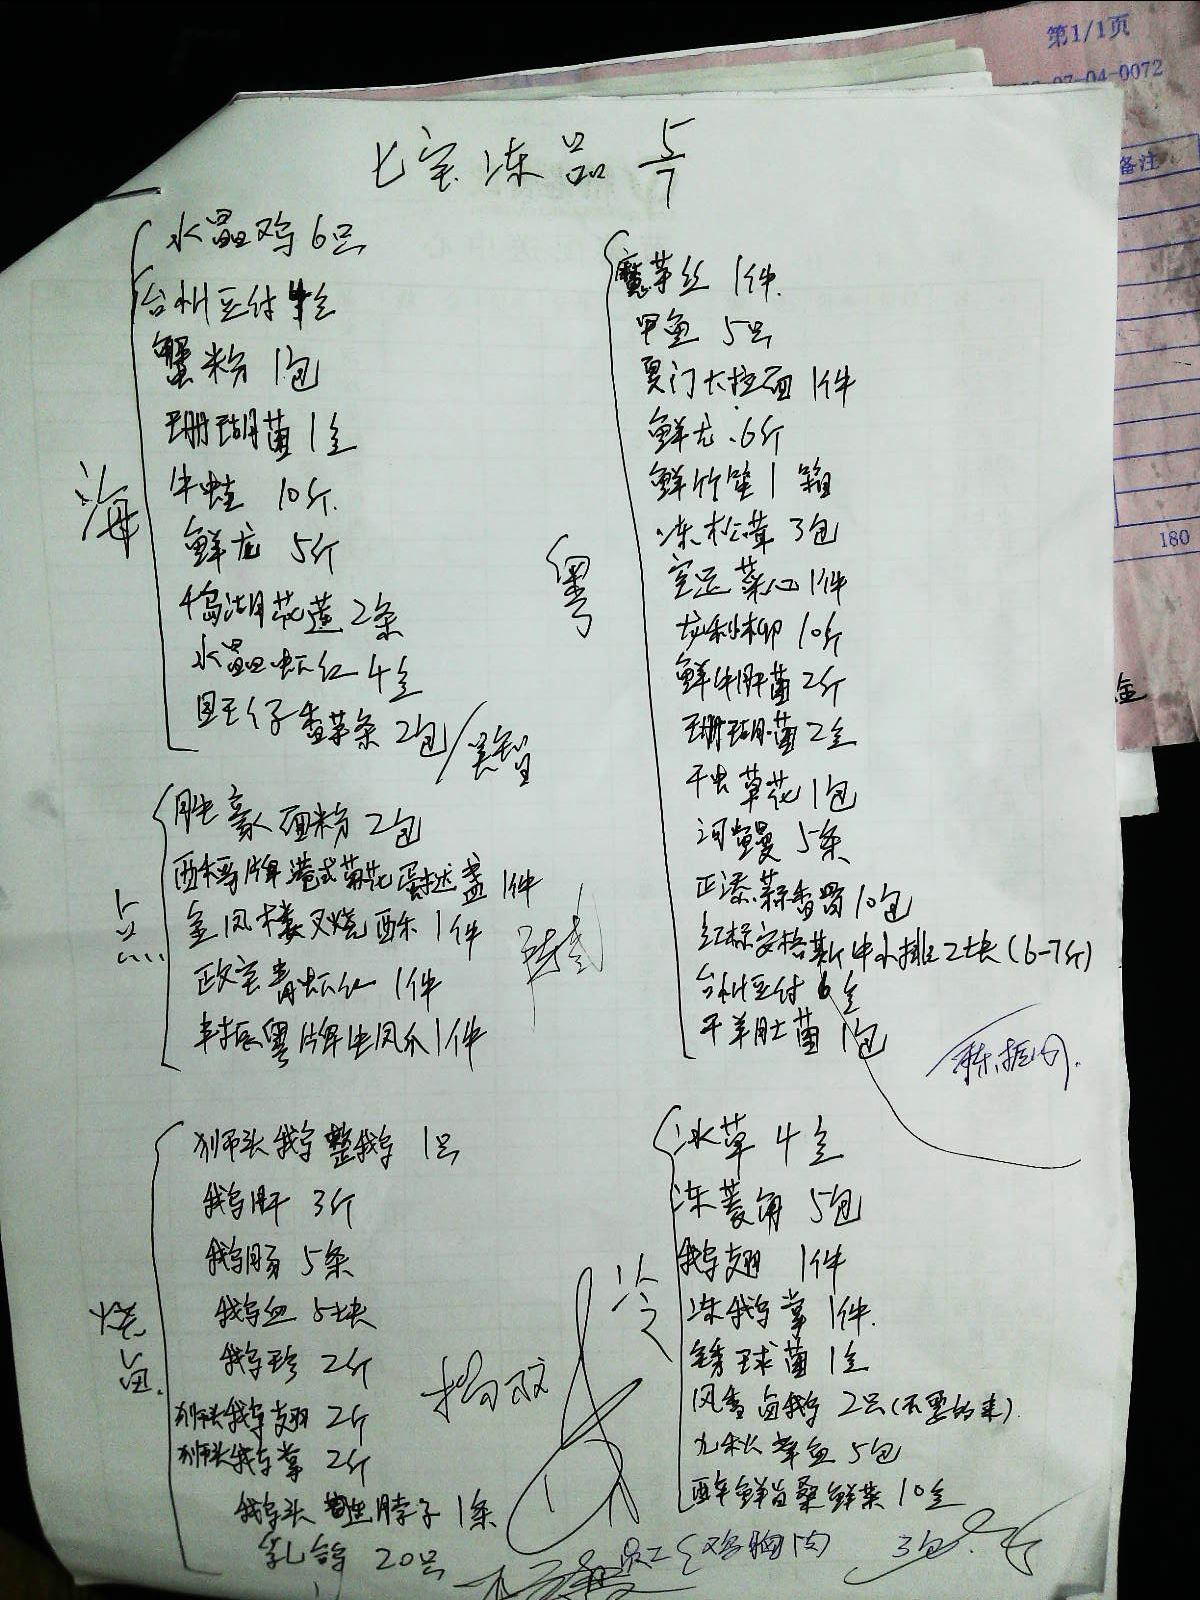 第1/1页
07-04-0072
备注
180
金
七宝冻品 5/7
海
水晶鸡 6只
台州豆付 4盒
蟹粉 1包
珊瑚菌 1盒
牛蛙 10斤
鲜龙 5斤
千岛湖花莲 2条
水晶虾仁 4盒
昌王仔香草条 2包
点
胜豪面粉 2包
酥梅牌港式菊花蛋挞盏 1件
金凤楼叉烧酥 1件
政宝青虾仁 1件
丰振粤牌生凤爪 1件
粤
魔芋丝 1件
甲鱼 5只
夏门大拉面 1件
鲜尤 6斤
鲜竹笙 1箱
冻松茸 3包
宝运菜心 1件
龙利柳 10斤
鲜牛肝菌 2斤
珊瑚菌 2盒
干虫草花 1包
河鳗 5条
正添蒜香骨 10包
红标安格斯牛小排 2块(6-7斤)
台州豆付 6盒
干羊肚菌 1包
狮头鹅整鹅 1只
鹅肝 3斤
鹅肠 5条
鹅血 5块
鹅珍 2斤
狮头鹅翅 2斤
狮头鹅掌 2斤
鹅头连脖子 1条
乳鸽 20只
冷
冰草 4盒
冻菱角 5包
鹅翅 1件
冻鹅掌 1件
绣球菌 1盒
风香卤鹅 2只(不要的来)
九秋章鱼 5包
酥鲜旨桑鲜菜 10盒
员工(鸡胸肉) 3包